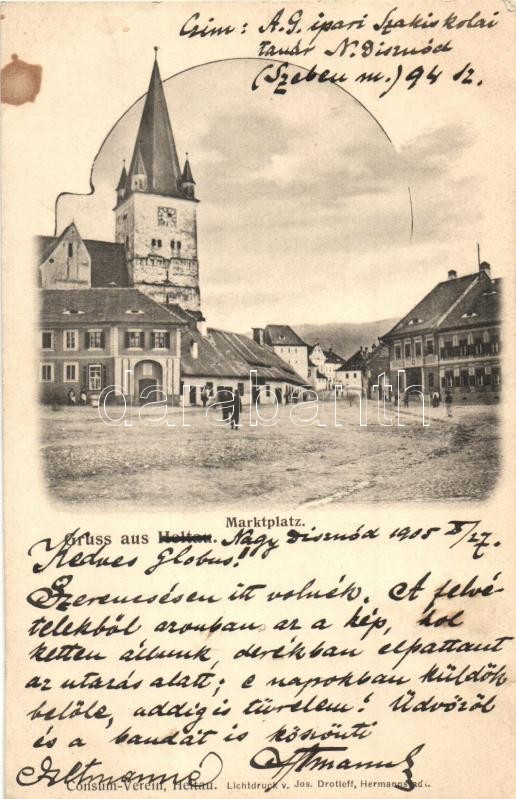 Czim: A. G. ipari Szakiskolai
tanár N. Disznód
(Szeben m.) 94 sz.
darabanth
Marktplatz.
Gruss aus Heltau. Nagy Disznód 1905 X/27.
Kedves Globus!
Szerencsésen itt volnék. A felvé-
telekből azonban az a kép, hol
ketten állunk, derékban elpattant
az utazás alatt; e napokban küldök
belőle, addig is türelem! Üdvözöl
és a bandát is köszönti
Consum-Verein, Heltau. Lichtdruck v. Jos. Drotleff, Hermannstadt.